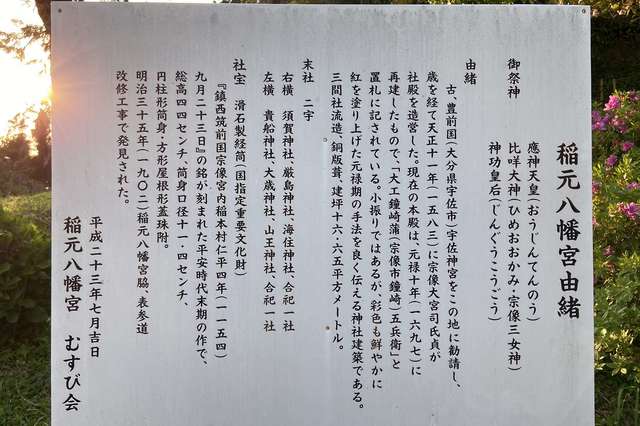 稲元八幡宮由緒
御祭神
應神天皇(おうじんてんのう)
比咩大神(ひめおおかみ・宗像三女神)
神功皇后(じんぐうこうごう)
由緒
古、豊前国(大分県宇佐市)宇佐神宮をこの地に勧請し、
歳を経て天正十一年(一五八三)に宗像大宮司氏貞が
社殿を造営した。現在の本殿は、元禄十年(一六九七)に
再建したもので、「大工鐘崎蒲(宗像市鐘崎)五兵衛」と
置札に記されている。小振りではあるが、彩色も鮮やかに
紅を塗り上げた元禄期の手法を良く伝える神社建築である。
三間社流造、銅版葺、建坪十六・六五平方メートル。
末社 二字
右横 須賀神社、厳島神社、海住神社、合祀一社
左横 貴船神社、大歳神社、山王神社、合祀一社
社宝 滑石製経筒(国指定重要文化財)
『鎮西筑前国宗像宮内稲本村仁平四年(一一五四)
九月二十三日』の銘が刻まれた平安時代末期の作で、
総高四四センチ、筒身口径十一・四センチ、
円柱形筒身・方形屋根形蓋珠附。
明治三十五年(一九〇二)稲元八幡宮脇、表参道
改修工事で発見された。
平成二十三年七月吉日
稲元八幡宮 むすび会